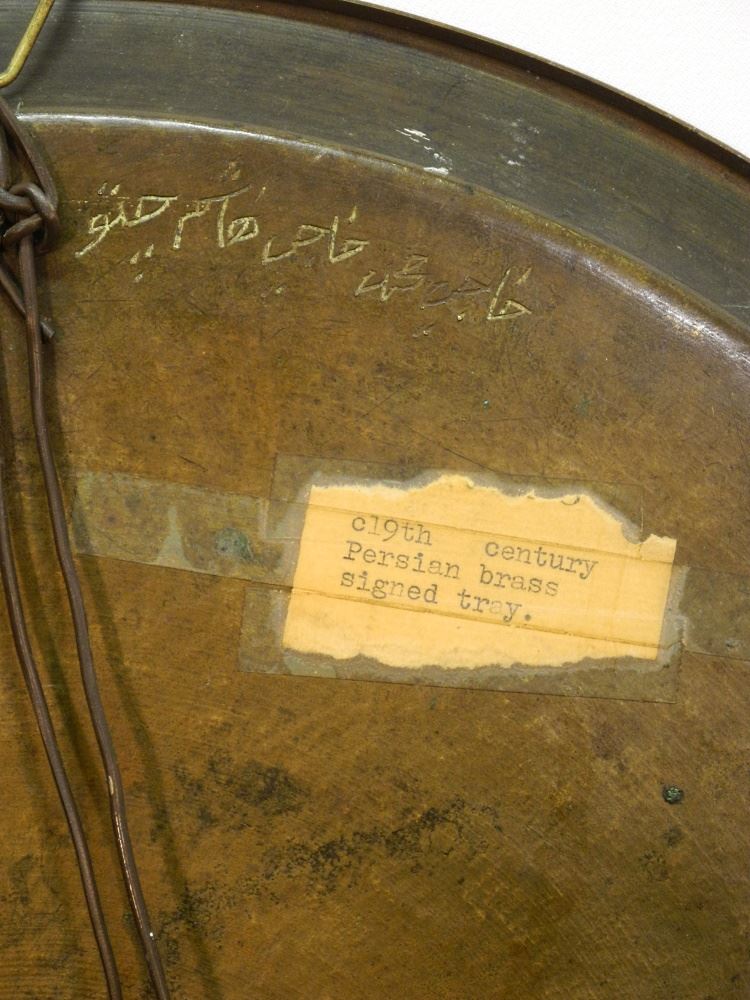 حاجی محمد حاجی هاشم
c19th century
Persian brass
signed tray.